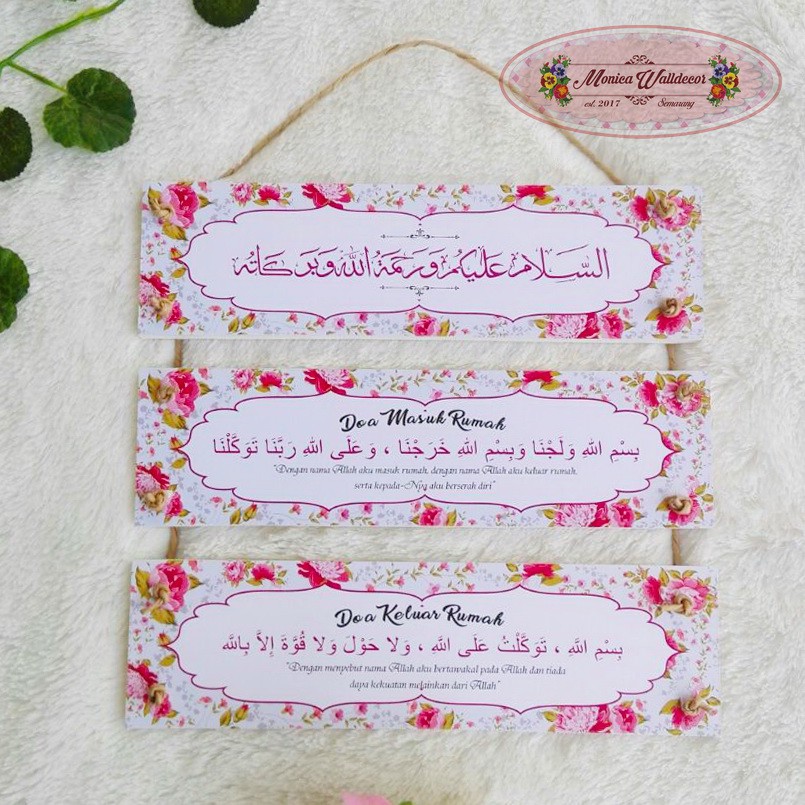 Monica Walldecor
est. 2017 Semarang
السلام عليكم ورحمة الله وبركاته
Doa Masuk Rumah
بِسْمِ اللهِ وَلَجْنَا وَبِسْمِ اللهِ خَرَجْنَا ، وَعَلَى اللهِ رَبَّنَا تَوَكَّلْنَا
"Dengan nama Allah aku masuk rumah, dengan nama Allah aku keluar rumah,
serta kepada-Nya aku berserah diri"
Doa Keluar Rumah
بِسْمِ اللَّهِ ، تَوَكَّلْتُ عَلَى اللَّهِ ، وَلا حَوْلَ وَلا قُوَّةَ إِلاَّ بِاللَّه
"Dengan menyebut nama Allah aku bertawakal pada Allah dan tiada
daya kekuatan melainkan dari Allah"